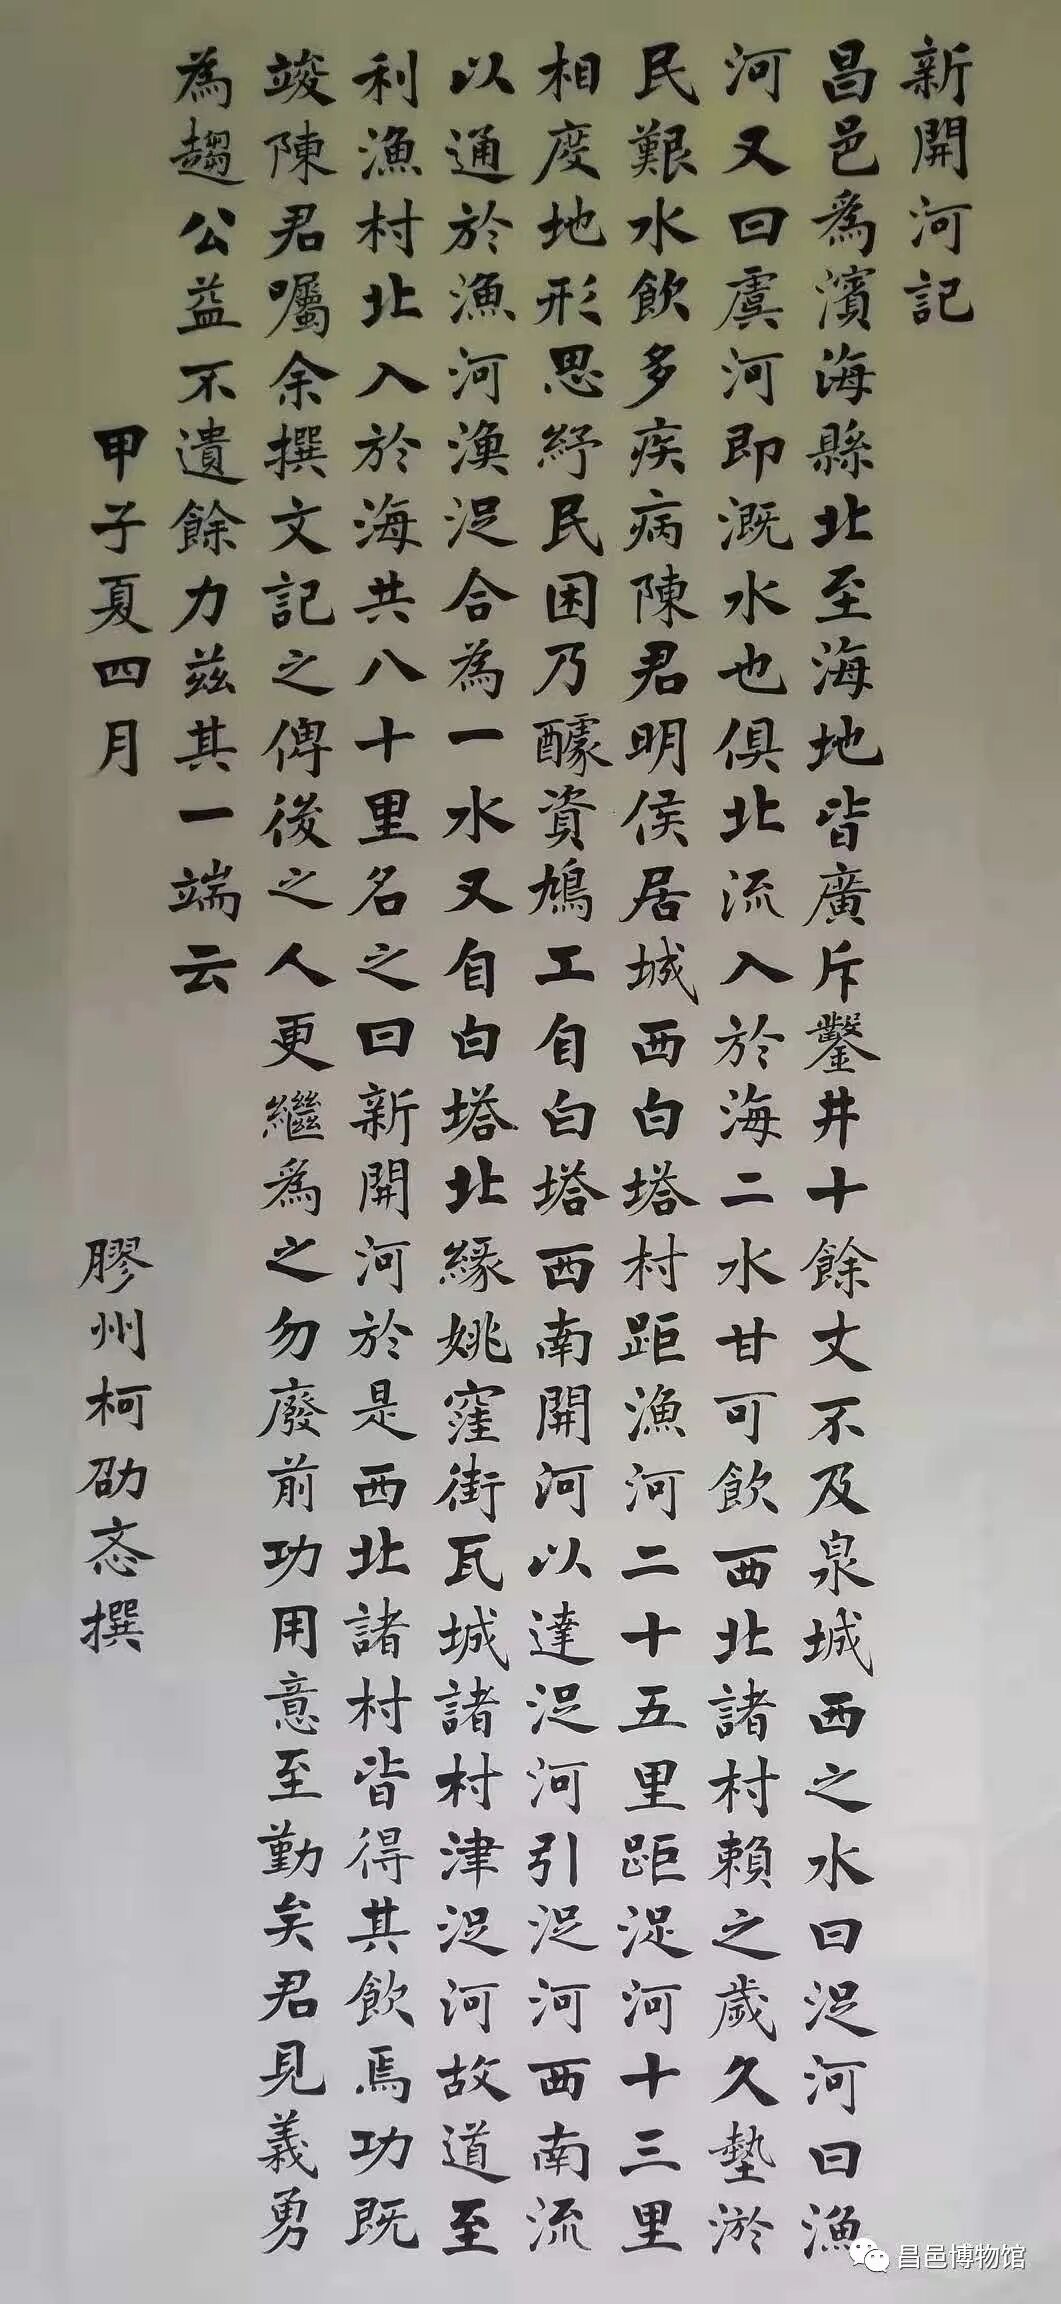 新開河記
昌邑爲濱海縣北至海地皆廣斥鑿井十餘丈不及泉城西之水曰浞河曰漁
河又曰虞河即溉水也俱北流入於海二水甘可飲西北諸村賴之歲久墊淤
民艱水飲多疾病陳君明侯居城西白塔村距漁河二十五里距浞河十三里
相度地形思紓民困乃醵資鳩工自白塔西南開河以達浞河引浞河西南流
以通於漁河漁浞合為一水又自白塔北緣姚窪街瓦城諸村津浞河故道至
利漁村北入於海共八十里名之曰新開河於是西北諸村皆得其飲焉功既
竣陳君囑余撰文記之俾後之人更繼爲之勿廢前功用意至勤矣君見義勇
為趨公益不遺餘力兹其一端云
甲子夏四月 膠州柯劭忞撰
昌邑博物馆